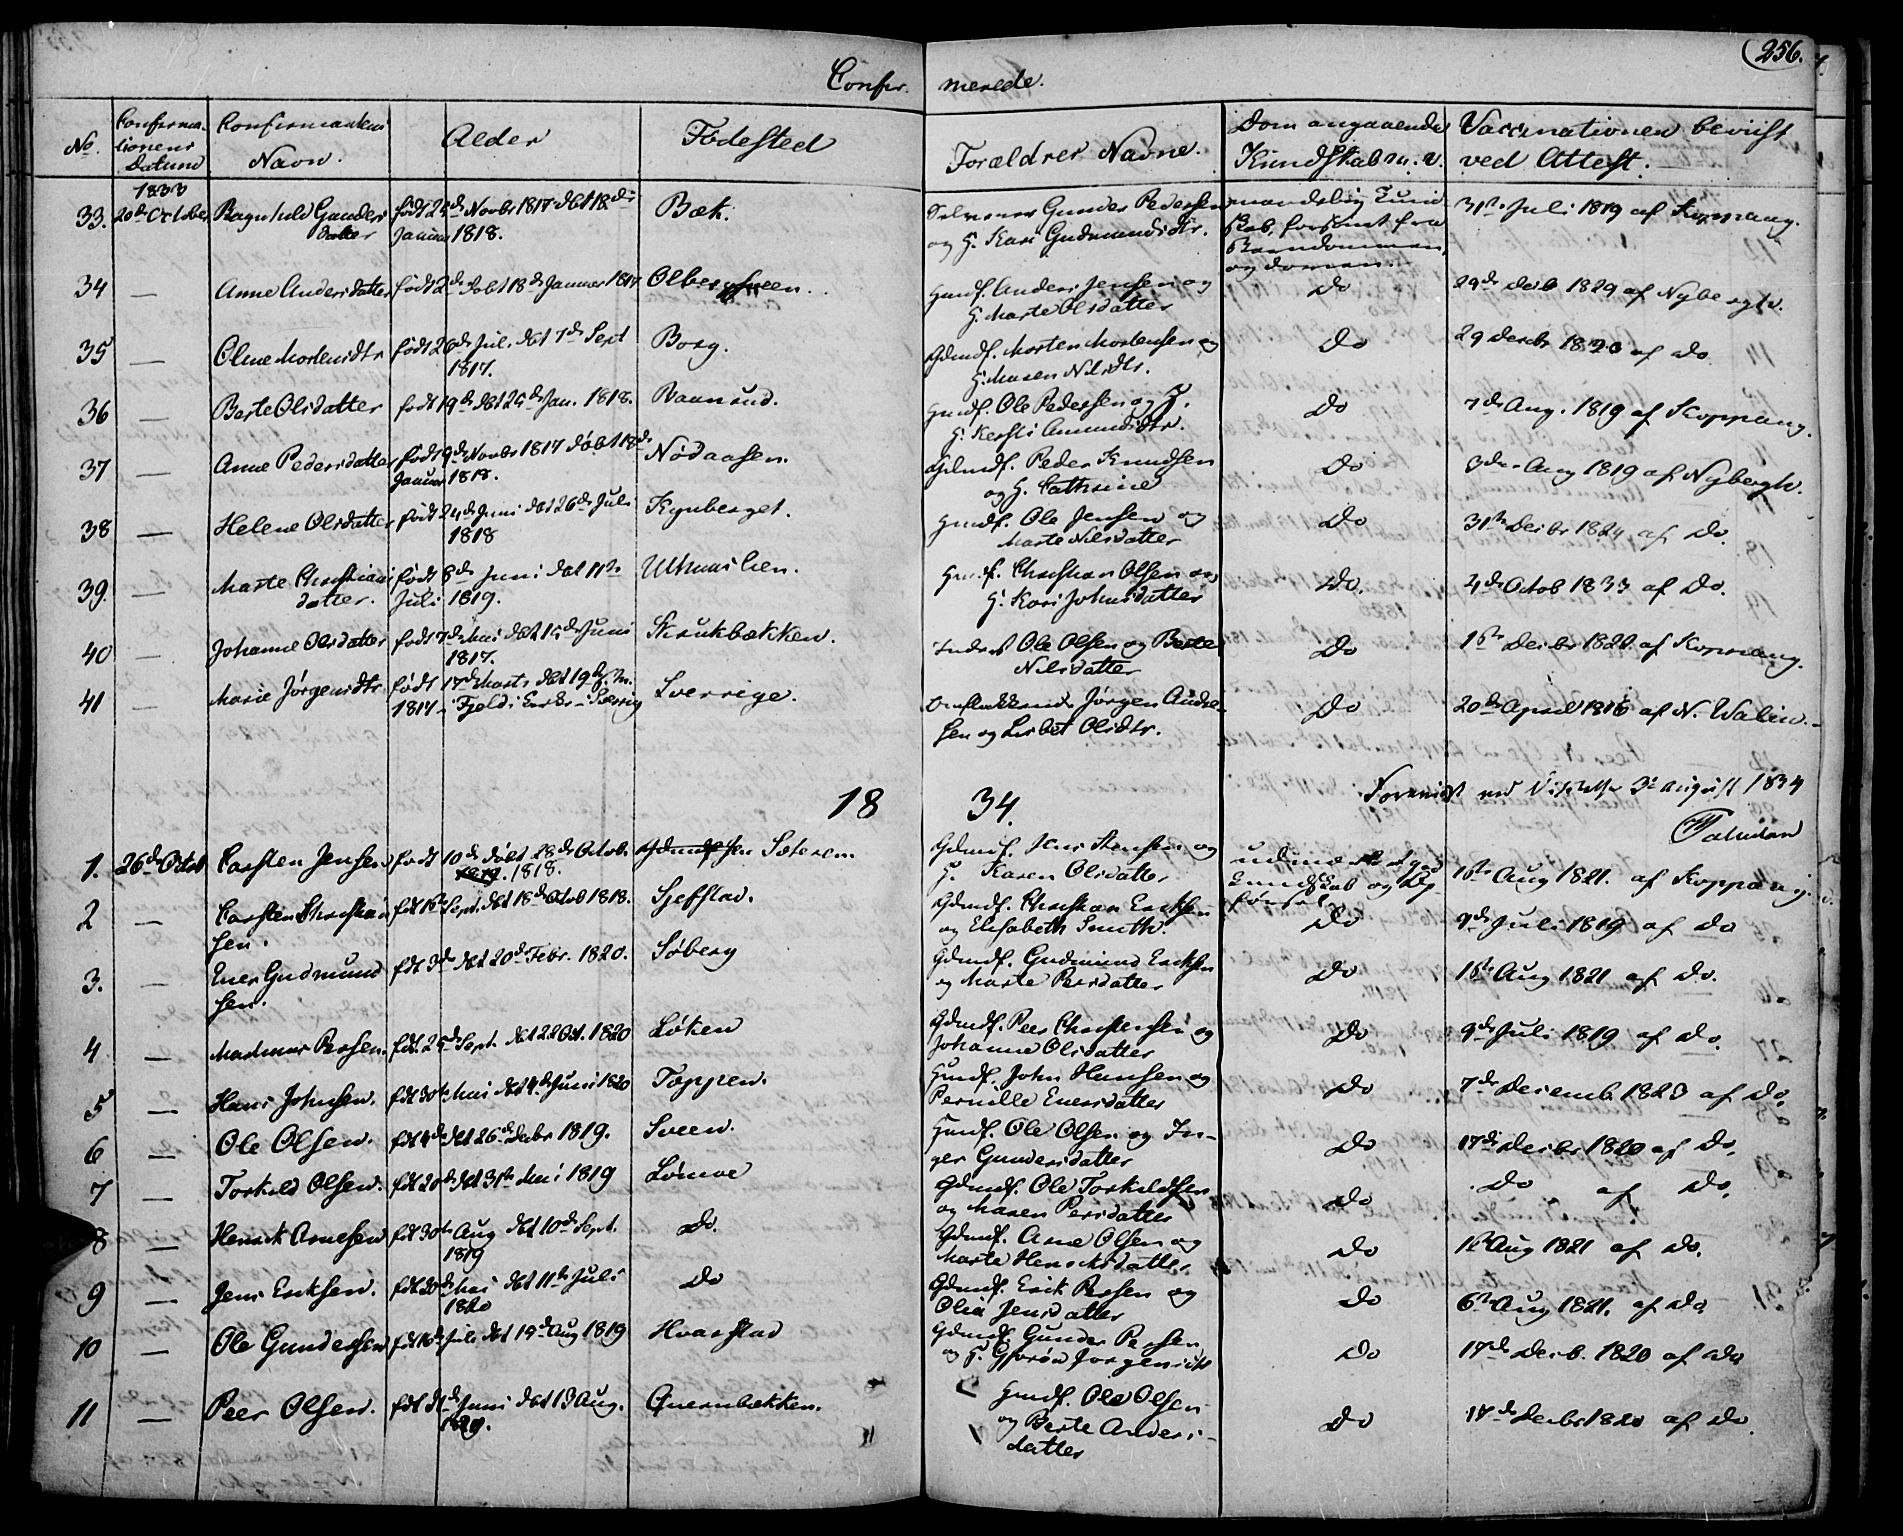 256.
Confir merede.
No. Confirma- tionens Datum Confirmantens Navn. Alder Fødested Forældres Navne. Dom angaaende Kundskab m. v. Vaccinationen beviist ved Attest.
1833
33. 20de October Ragnhild Gunders datter født 24de Novbr 1817 døbt 18de Januar 1818. Bæk. Gunder Pedersen og H. Kari Gudmundsdtr. Kundskab, forsømt fra Barndommen 31te Juli 1819 af Koppang.
34 — Anne Andersdatter født 2de døbt 18de Januar 1817 Olbergsveen. Huusf. Anders Jensen og H. Marte Olsdatter Do 29de Decb 1829 af Nybergh.
35 — Oline Mortensdtr født 26de Jul. døbt 7de Sept 1817. Borg. Gdmdf. Morten Mortensen og H. Maren Nilsdtr. Do 29 Decbr 1820 af do
36 — Berte Olsdatter født 19de døbt 25de Jan. 1818. Raanund. Huusf. Ole Pedersen og H. Kersti Amundsdtr. Do 7de Aug. 1819 af Koppang.
37 — Anne Pedersdatter født 9de Novbr 1817 døbt 18de Januar 1818. Nødaasen. Gdmdf. Peder Knudsen og H. Cathrine Do 3die Aug 1819 af Nybergh.
38 — Helene Olsdatter født 24de Juni døbt 26de Juli 1818 Kynberget. Huusf. Ole Jensen og Marte Nilsdatter Do 31te Decbr 1824 af Do.
39. — Marte Christians datter. født 6de Juni døbt 11te Juli 1819. Ulhuuslien. Huusf. Christian Olsen og H. Kari Johnsdatter Do. 4de Octob 1833 af Do.
40 — Johanne Olsdatter født 7de Mai døbt 15de Juni 1817. Skrukbækken. Inderst Ole Olsen og Berte Nilsdatter Do 1ste Decbr 1820 af Koppang.
41 — Marie Jørgensdtr født 17de Marts døbt 19 s. M. 1817 i Fjelds Enkr. i Sverrig Sverrige. Omflakkende Jørgen Andre- sen og Lisbet Olsdtr. Do 20de April 1816 af N. Walin.
18 34.
Foreviist ved Visitats 3de August 1834
1. 26de Octob Carsten Jensen født 10de døbt 28de Octob. 1818. Sæteren Gdmdf. Jens Stensen og H. Karen Olsdatter udmærket god Kundskab og Opførsel 1ste Aug 1821. af Koppang.
2 — Carsten Christian sen. fdt 15de Sept. døbt 18de Octob 1818. Sjefstad. Gdmdf. Christian Ericksen og Elisabeth Smith. Do 9de Juli 1819 af do
3. — Ener Gudmund sen. fdt 3de døbt 20de Febr. 1820. Søberg Gdmdf. Gudmund Ericksen og Marte Peersdatter Do 1ste Aug 1821 af Do.
4 — Mathias Persen. fdt. 25de Sept. døbt 22 Oct. 1820 Løken Gdmdf. Peer Christensen og Johanne Olsdatter Do 9de Juli 1819 af Do.
5 — Hans Johnsen. fdt 30te Mai døbt 4de Juni 1820 Toppen. Huusf. John Hansen og Pernille Enersdatter Do 7de Decemb 1820 af Do.
6 — Ole Olsen. fdt 4de døbt 26de Decbr 1819. Sveen. Huusf. Ole Olsen og In- ger Gundersdatter Do 17de Decbr 1820 af Do.
7 — Torkild Olsen. fdt 20de døbt 31te Mai 1819 Lømoe Gdmdf. Ole Torkildsen og Maren Persdatter Do Do af Do.
8 — Henrik Arnesen fdt 30te Aug døbt 10de Sept. 1819 Do. Gdmdf. Arne Olsen og Marte Henricksdatter Do 1ste Aug 1821 af Do.
9 — Jens Ericksen. fdt 20de Mai døbt 11te Juli 1820 Do Gdmdf. Erick Persen og Olea Jensdatter Do 6te Aug 1821. af Do
10 — Ole Gundersen fdt 16de Juli døbt 19de Aug 1819 Hvarstad Gdmdf. Gunder Persen og H. Jørgensdtr Do 17de Decb. 1820 af do
11 — Peer Olsen. fdt Juni døbt 13 Aug. 1819. Qvernbækken. Huusf. Ole Olsen og Berte Anders- datter Do 17de Decbr 1820 af do